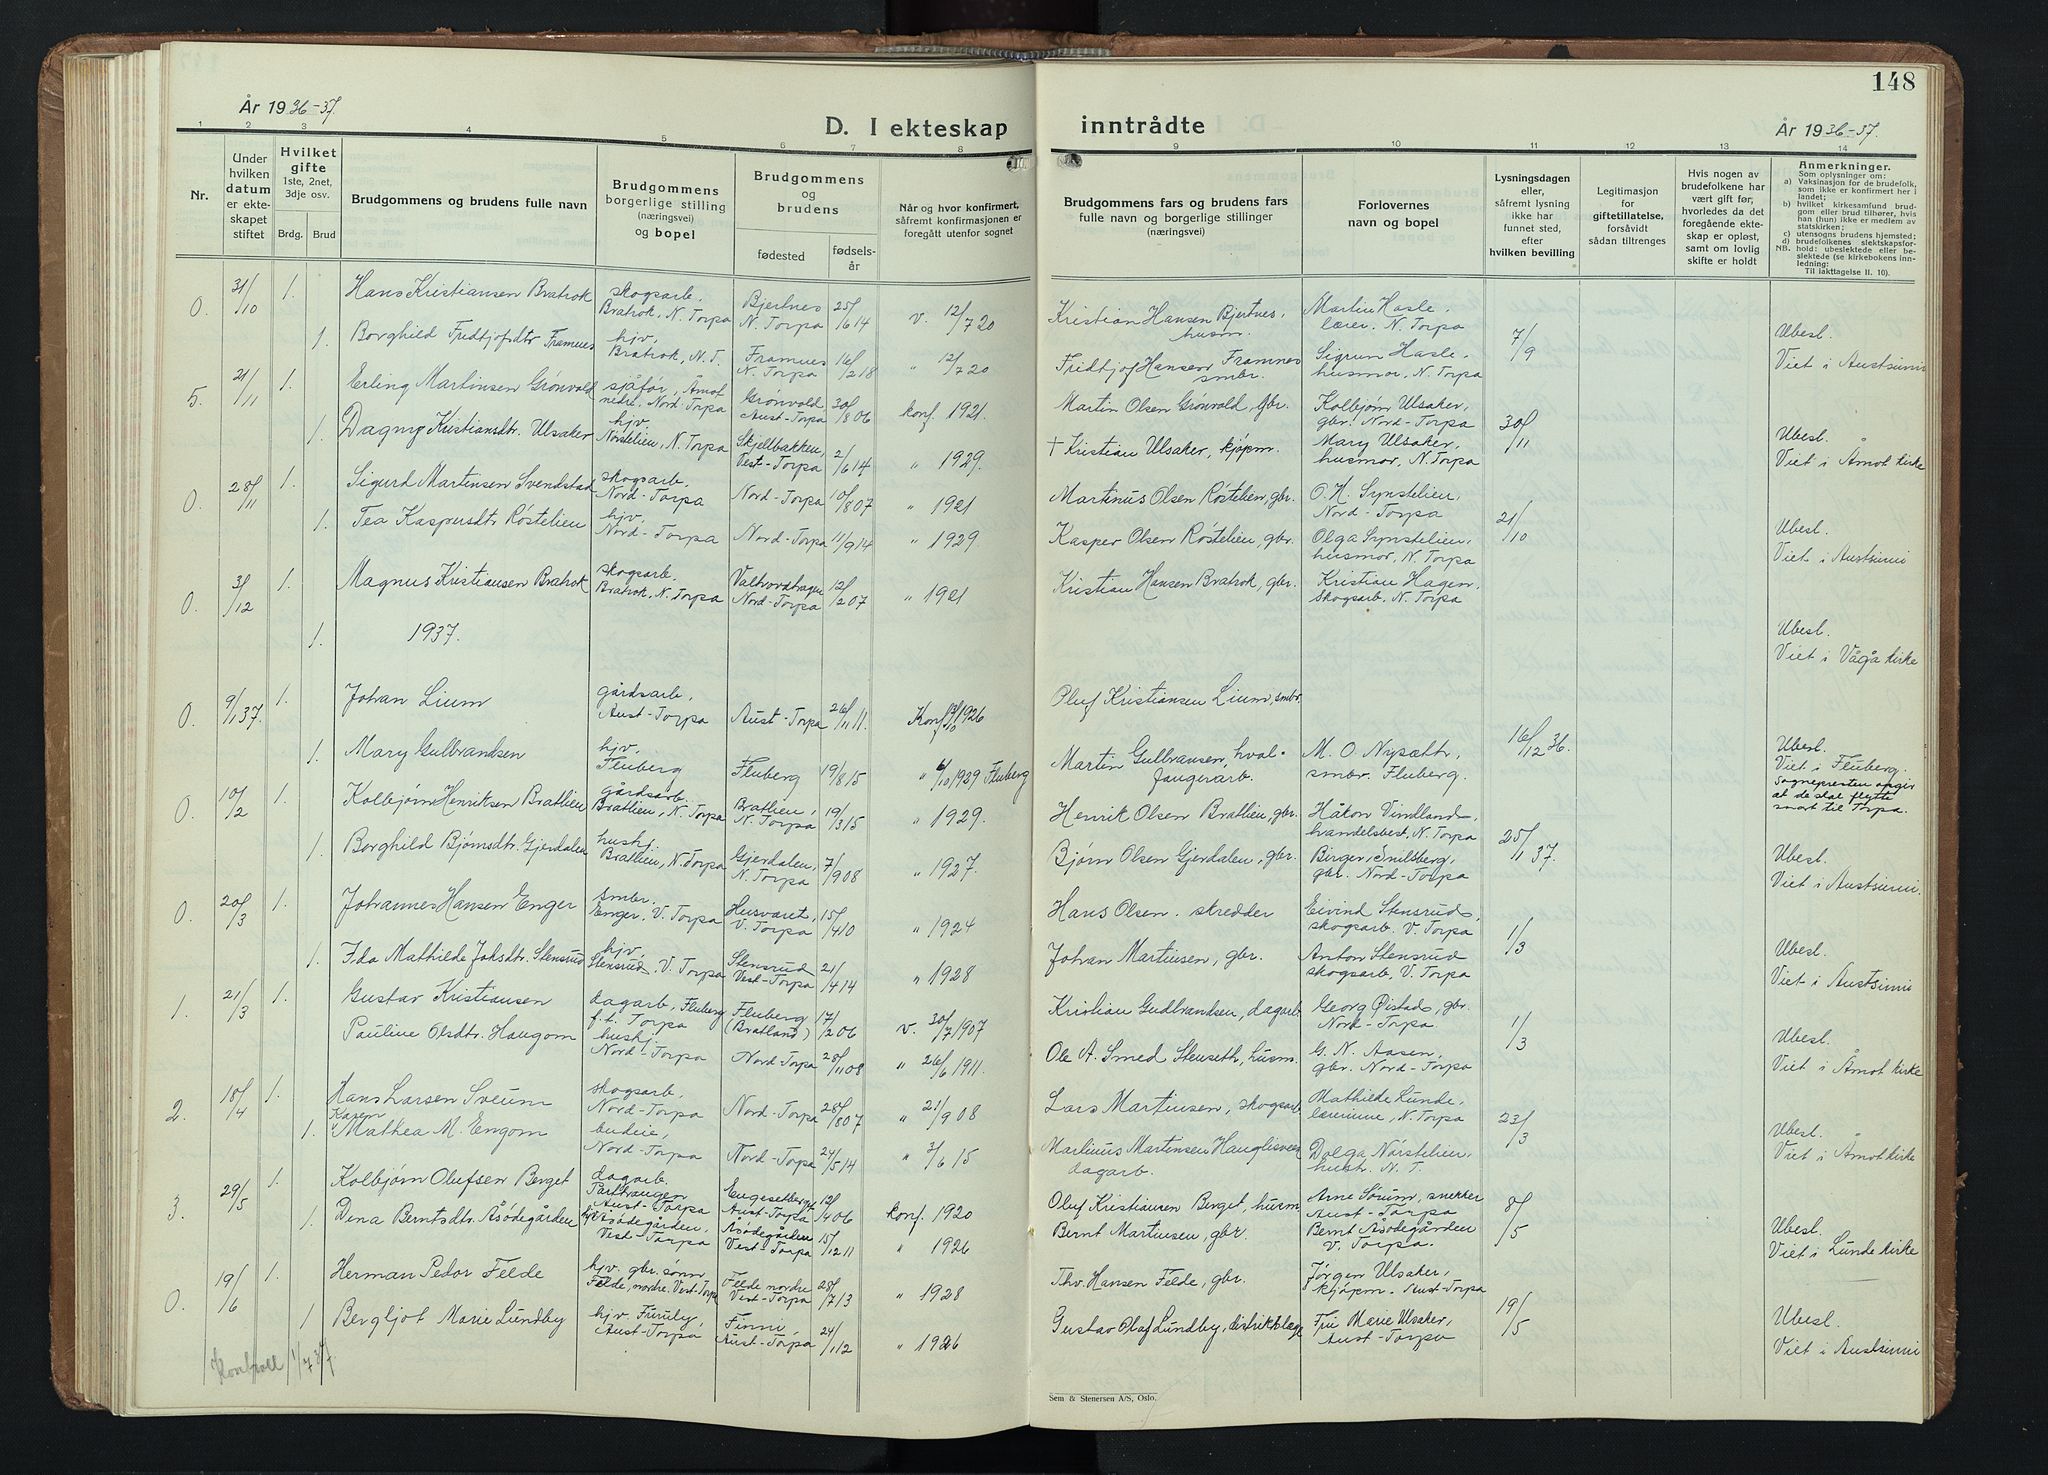 148
År 1936-37.
D. I ekteskap inntrådte
År 1936-37.
1 2 3 4 5 6 7 8 9 10 11 12 13 14
Nr.
Under hvilken datum er ekteskapet stiftet
Hvilket gifte 1ste, 2net, 3dje osv.
Brdg. Brud
Brudgommens og brudens fulle navn
Brudgommens borgerlige stilling (næringsvei) og bopel
Brudgommens og brudens
fødested
fødselsår
Når og hvor konfirmert, såfremt konfirmasjonen er foregått utenfor sognet
Brudgommens fars og brudens fars fulle navn og borgerlige stillinger (næringsvei)
Forlovernes navn og bopel
Lysningsdagen eller, såfremt lysning ikke har funnet sted, efter hvilken bevilling
Legitimasjon for giftetillatelse, forsåvidt sådan tiltrenges
Hvis nogen av brudefolkene har vært gift før, hvorledes da det foregående ekteskap er opløst, samt om lovlig skifte er holdt
Anmerkninger.
Som oplysninger om:
a) Vaksinasjon for de brudefolk, som ikke er konfirmert her i landet;
b) hvilket kirkesamfund brudgom eller brud tilhører, hvis han (hun) ikke er medlem av statskirken;
c) utensogns brudens hjemsted;
d) brudefolkenes slektskapsforhold: ubeslektede eller beslektede (se kirkebokens innledning:
NB.
Til Iakttagelse II. 10).
0. 31/10 1. Hans Kristiansen Bratrok skogsarb. Bratrok, N. Torpa Bjertnes N. Torpa 25/6 14 v. 12/7 20 Kristian Hansen Bjertnes, husm. Martin Hasle, lærer. N. Torpa
1. Borghild Fridtjofsdtr Framnes hjv. Bratrok, N. T. Framnes N. Torpa 16/2 18 " 12/7 20 Fridtjof Hansen Framnes smbr. Sigrun Hasle, husmor, N. Torpa 7/9 Ubesl. Viet i Austsinni
5. 21/11 1. Erling Martinsen Grönvold sjåfør, Åmot nedre, Nord-Torpa Grönvold, Aust-Torpa 30/8 06 konf. 1921. Martin Olsen Grönvold, gbr. Kolbjørn Ulsaker, gbr. Nord-Torpa
1. Dagny Kristiansdtr. Ulsaker hjv. Nörstelien, N. Torpa Skjeltbakken, Vest-Torpa 2/6 14 " 1929. † Kristian Ulsaker, kjøpm. Mary Ulsaker, husmor, N. Torpa 30/11 Ubesl. Viet i Åmot kirke
0. 28/11 1. Sigurd Martinsen Svendstad skogsarb. Nord-Torpa Nord-Torpa 10/8 07 " 1921 Martinus Olsen Röstelien, gbr. O. H. Synstelien, Nord-Torpa
1. Tea Kaspersdtr Röstelien hjv. Nord-Torpa Nord-Torpa 11/9 14 " 1929 Kasper Olsen Röstelien, gbr. Olga Synstelien, husmor, N. Torpa 21/10 Ubesl. Viet i Austsinni
0. 3/12 1. Magnus Kristiansen Bratrok skogsarb. Bratrok, N. Torpa Nord-Torpa 12/2 07 " 1921 Kristian Hansen Bratrok, gbr. Kristian Hagen, skogsarb. N. Torpa
1. 1937. Ubesl. Viet i Vågå kirke
0. 9/1 37. 1. Johan Lium gårdsarb. Aust-Torpa Aust-Torpa 26/11 11. Konf. 1926 Oluf Kristiansen Lium, smbr.
1. Mary Gulbrandsen hjv. Fluberg Fluberg 19/8 15 " 6/10 1929 Fluberg Martin Gulbransen, hvalfangerarb. M. O. Nysætr, smbr. Fluberg. 16/12 36. Ubesl. Viet i Fluberg. Sognepresten opgir at de skal flytte snart til Torpa.
0. 10/2 1. Kolbjørn Henriksen Bratlien gårdsarb. Bratlien, N. Torpa Bratlien, N. Torpa 19/3 15 " 1929. Henrik Olsen Bratlien, gbr. Håkon Vindland, handelsbest, N. Torpa
1. Borghild Bjørnsdtr. Gjerdalen hushj. Bratlien, N. Torpa Gjerdalen, N. Torpa 7/9 08 " 1927. Bjørn Olsen Gjerdalen, gbr. Birger Snilsberg, gbr. Nord-Torpa 25/1 37. Ubesl. Viet i Austsinni.
0. 20/3 1. Johannes Hansen Enger smbr. Enger, V. Torpa Husværet, V. Torpa 15/4 10 " 1924 Hans Olsen. skredder Eivind Stensrud, skogsarb. V. Torpa
1. Ida Mathilde Johsdtr. Stensrud hjv. Stensrud, V. Torpa Stensrud Vest-Torpa 21/4 14 " 1928 Johan Martinsen, gbr. Anton Stensrud skogsarb, V. Torpa 1/3 Ubesl. Viet i Austsinni
1. 21/3 1. Gustav Kristiansen dagarb, Fluberg f.t. Torpa Fluberg (Bratland) 17/2 06 v. 30/7 1907 Kristian Gudbrandsen, dagarb. Georg Øistad, gbr. Nord-Torpa
Pauline Olsdtr. Haugom hushj. Nord-Torpa Nord-Torpa 28/11 08 " 26/6 1911. Ole A. Smed Stenseth, husm. G. N. Aasen, gbr. Nord-Torpa 1/3 Ubesl. Viet i Åmot kirke
2. 18/4 1. Hans Larsen Sveum skogsarb. Nord-Torpa Nord-Torpa 28/8 07 " 21/9 08 Lars Martinsen, skogsarb. Mathilde Lunde, lærerinne, N. Torpa
1. Karen Mathea M. Engom budeie, Nord-Torpa Nord-Torpa 24/5 14 " 3/6 15 Martinus Martinsen dagarb. Nörstelien, hustr. N. T. 23/3 Ubesl. Viet i Åmot kirke
3. 29/5 1. Kolbjørn Olufsen Berget dagarb. Aust-Torpa Aust-Torpa 12/4 06 konf. 1920 Oluf Kristiansen Berget, husm. Arne Sørum, snekker Aust-Torpa
1. Dina Berntsdtr. Åsödegården hjv. Åsödegården, Vest-Torpa Åsödegården Vest-Torpa 15/12 11 " 1926 Bernt Martinsen, gbr. Bernt Åsödegården V. Torpa. 8/5 Ubesl. Viet i Lunde kirke
0. 19/6 1. Herman Pedor Felde hjv. gbr. sønn Felde, nordre. Vest-Torpa Felde nordre Vest-Torpa 28/7 13 " 1928 Thv. Hansen Felde, gbr. Jørgen Ulsaker, kjøpm. Aust-Torpa
1 Bergljot Marie Lundby hjv. Furuly, Aust-Torpa Finni, Aust-Torpa 24/1 12 " 1926 Gustav Olaf Lundby, distriktslæge Fru Marie Ulsaker, Aust-Torpa 19/5 Ubesl. Viet i Austsinni
Kontroll 1/7 37
Sem & Stenersen A/S, Oslo.